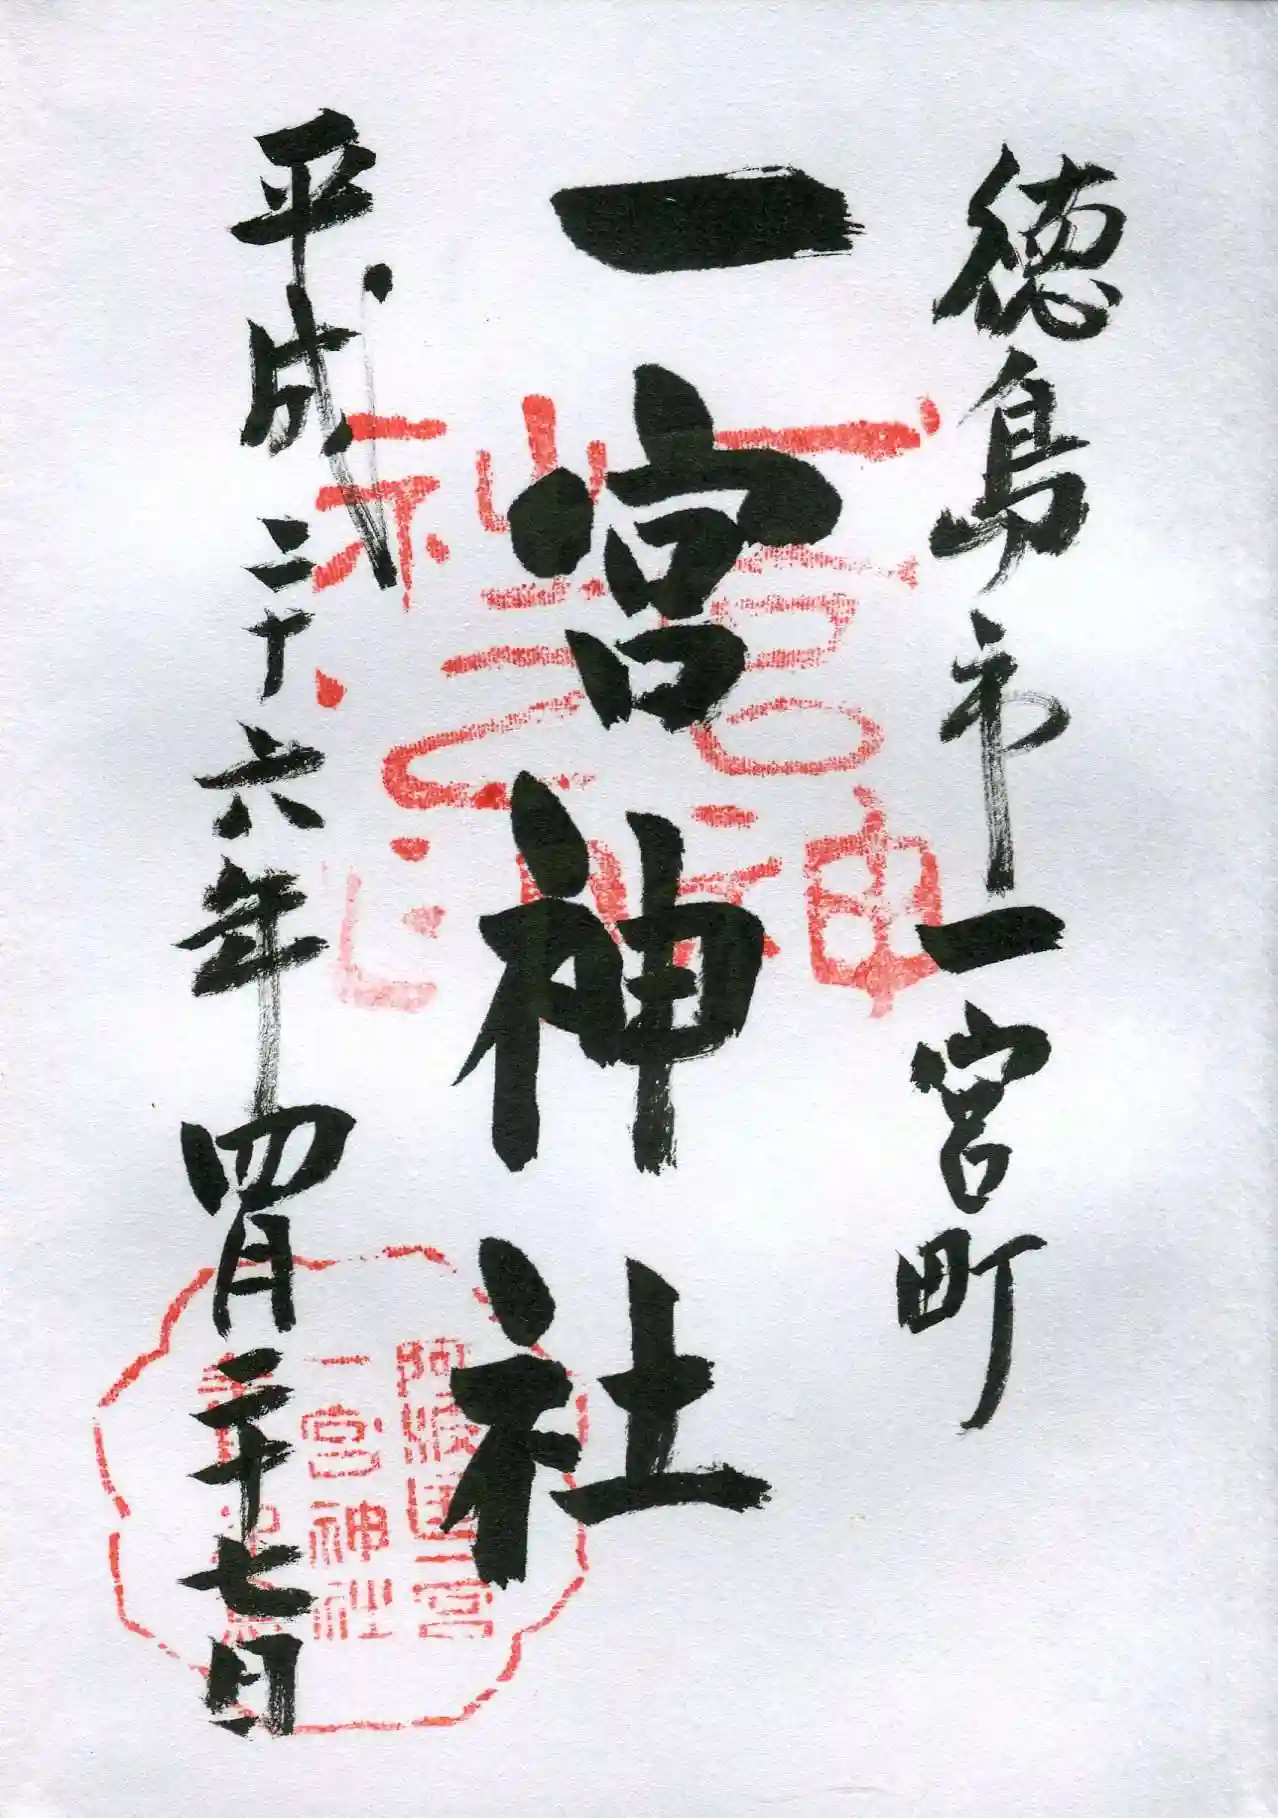 徳島市一宮町
一宮神社
平成二十六年四月二十七日
一宮神社之印
阿波国一宮
一宮神社